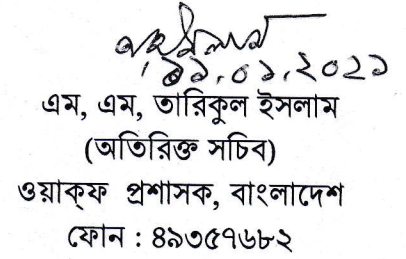 ১১.০১.২০২১
এম, এম, তারিকুল ইসলাম
(অতিরিক্ত সচিব)
ওয়াক্ফ প্রশাসক, বাংলাদেশ
ফোন : ৪৯৩৫৭৬৮২